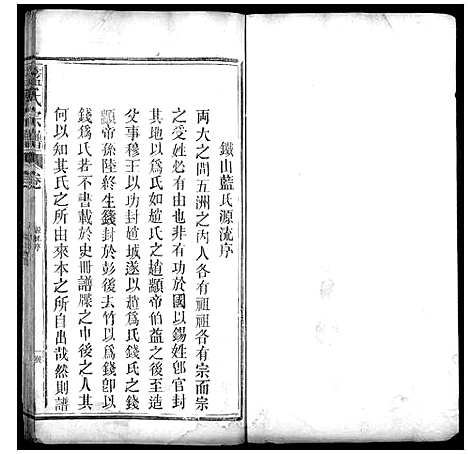 鐵山藍氏源流序
兩大之間五洲之內人各有祖祖各有宗而宗
之受姓必有由也非有功於國以錫姓卽官封
其地以爲氏如趙氏之趙顓帝伯益之後至造
父事穆王以功封趙城遂以趙爲氏錢氏之錢
顓帝孫陸終生籛封於彭後去竹以爲錢卽以
錢爲氏若不書載於史冊譜牒之中後之人其
何以知其氏之所由來本之所自出哉然則譜
藍氏宗譜
卷